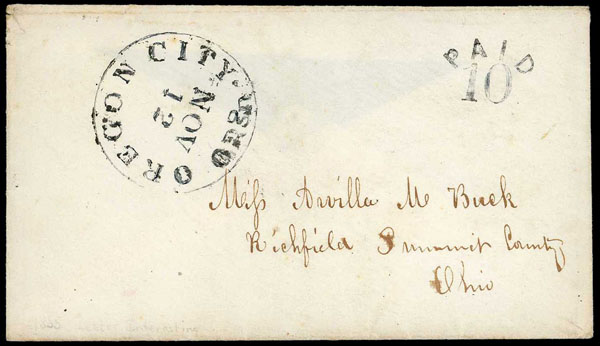 OREGON CITY
NOV
12
PAID
10
Miss Arvilla M Buck
Richfield Summit County
Ohio